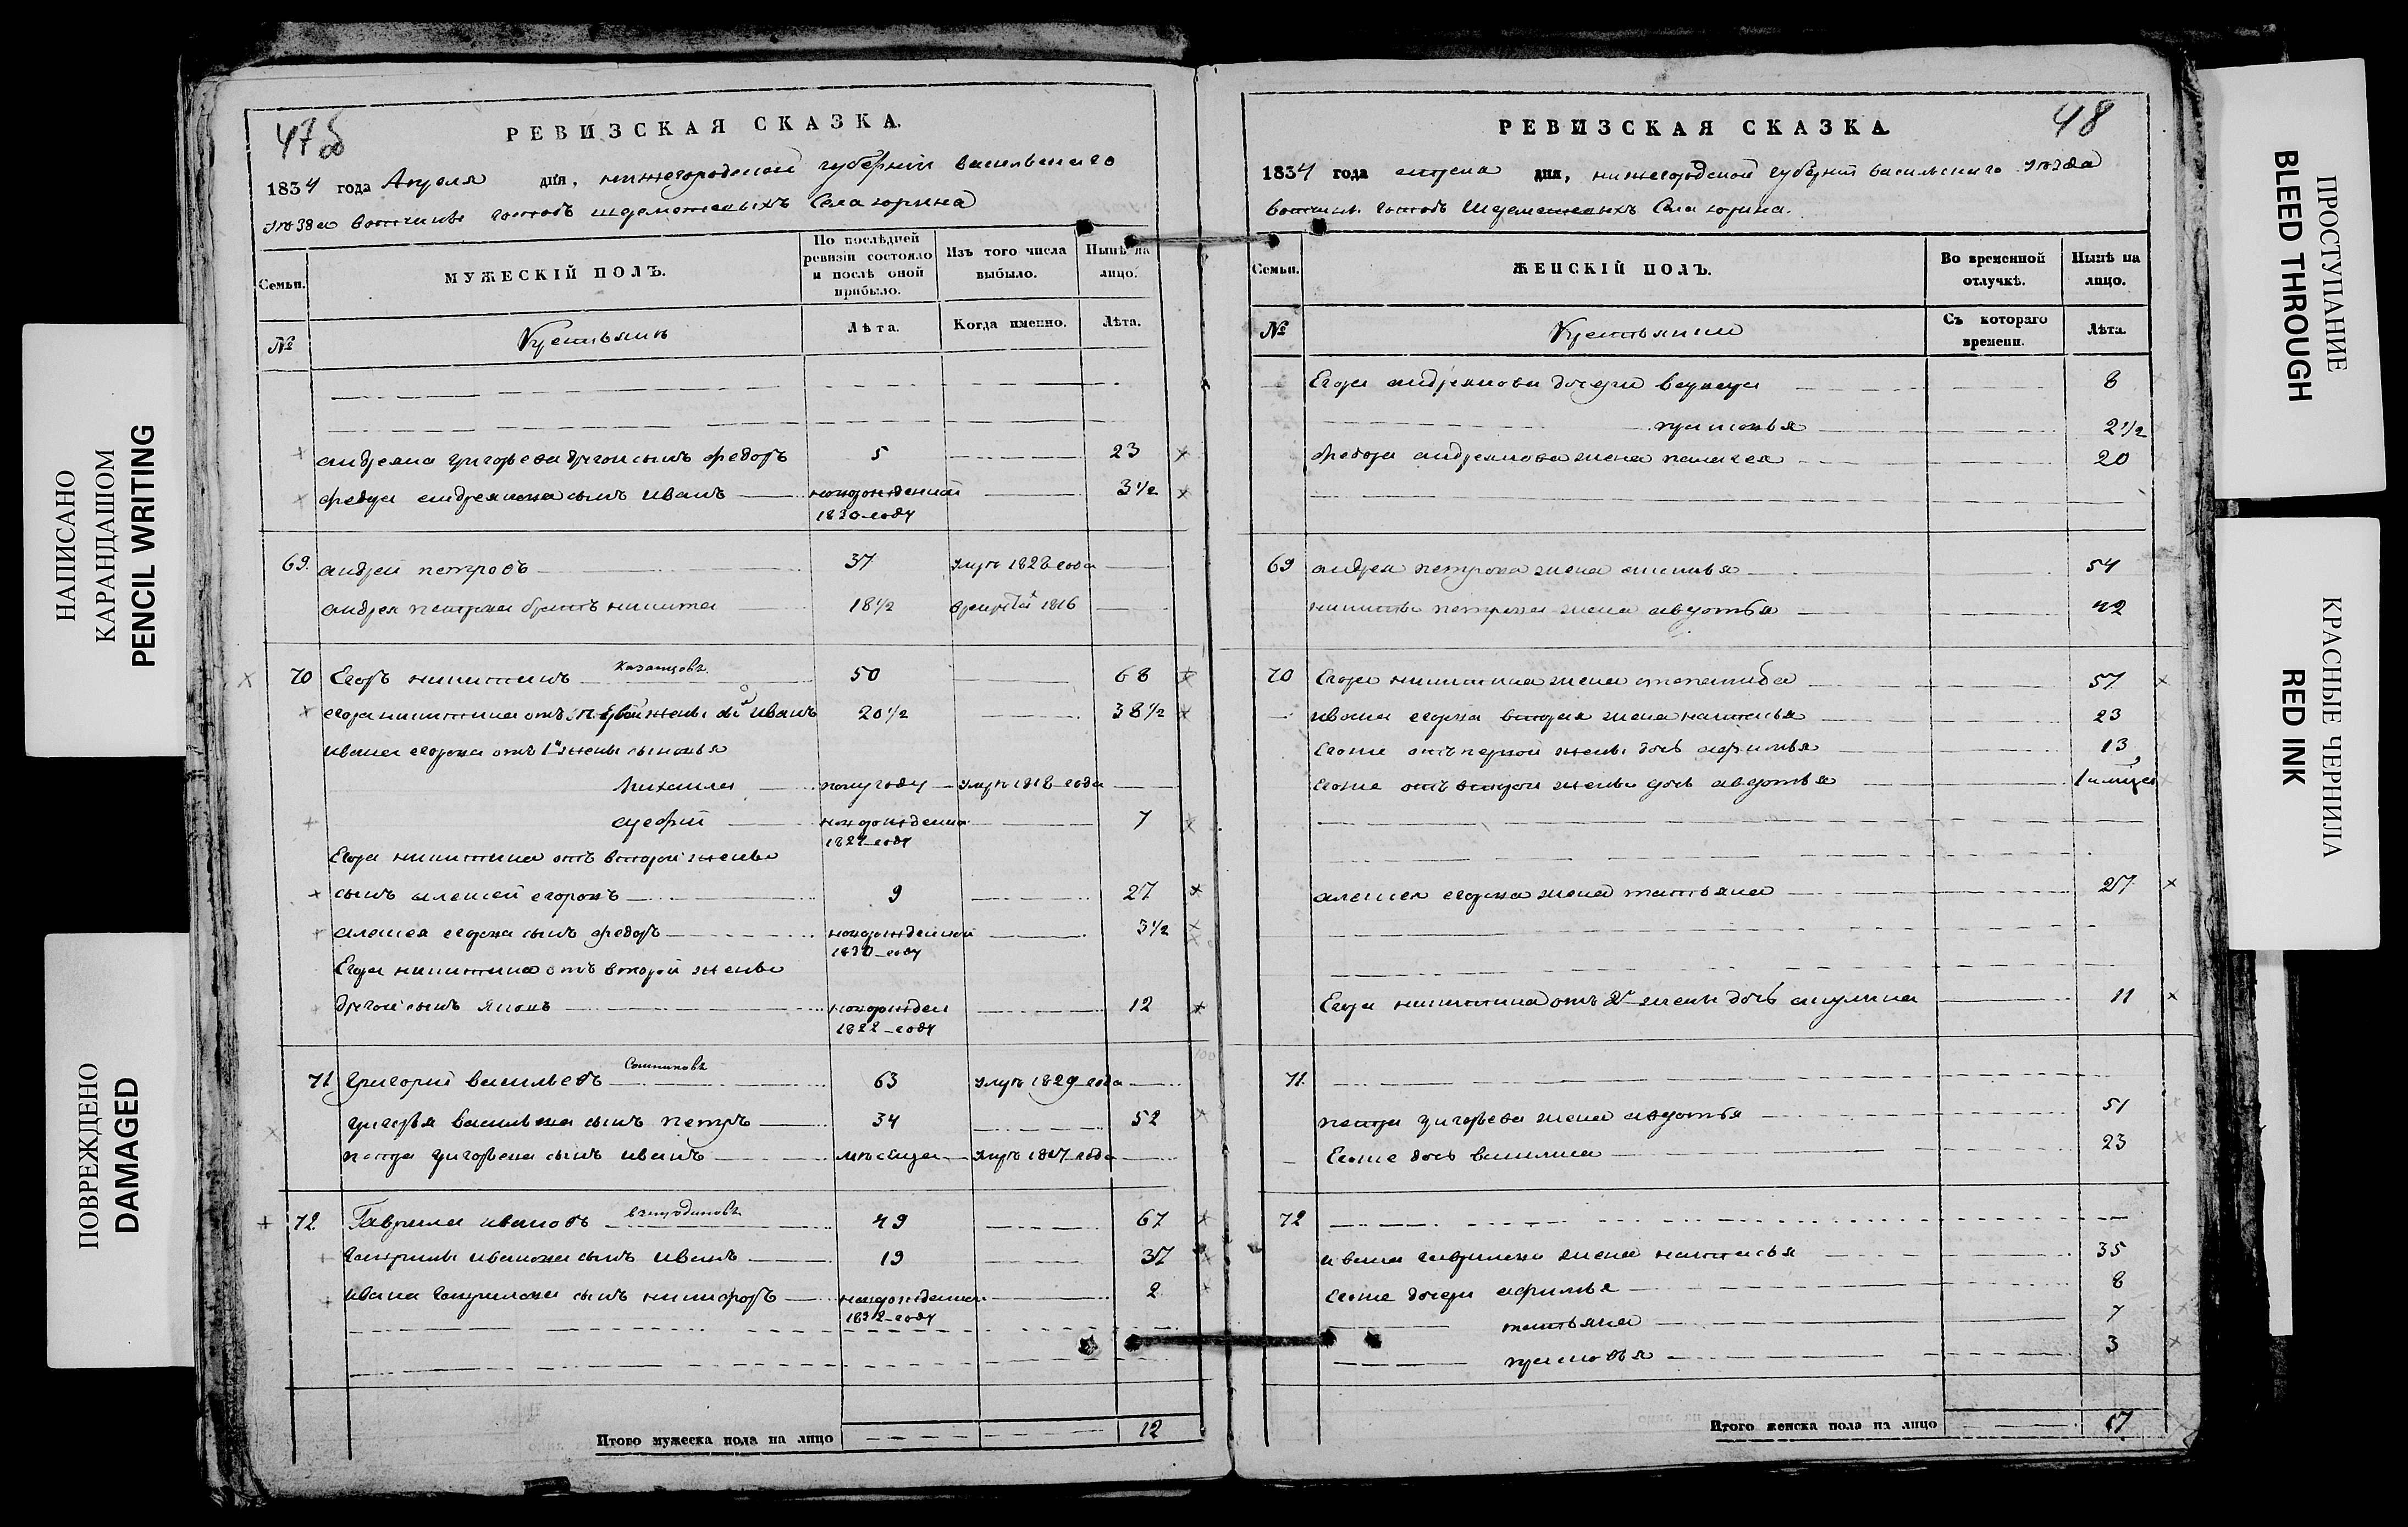 НАПИСАНО
КАРАНДАШОМ
PENCIL WRITING
ПОВРЕЖДЕНО
DAMAGED
47об
РЕВИЗСКАЯ СКАЗКА.
1834 года Апреля дня, нижегородской губернии васильскаго
уезда вотчины господъ шереметевыхъ Села юрина
Семьи.
МУЖЕСКІЙ ПОЛЪ.
По послѣдней ревизіи состояло и послѣ оной прибыло.
Изъ того числа выбыло.
Нынѣ на лицо.
№
Крестьяне
Лѣта.
Когда именно.
Лѣта.
андреяна григорьева другой сынъ федоръ 5 23
федора андреянова сынъ иванъ новорожденный 3 1/2
1830 году
69. андрей петровъ 37 умре 1828 года
андрея петрова братъ никита 18 1/2 1816
70 Егоръ никитинъ казанцовъ 50 68
егора никитина отъ первой жены иванъ 20 1/2 38 1/2
ивана егорова отъ 1й жены сыновья
михаила полугоду умре 1818 года
новорожденной 7
1827 году
Егора никитина отъ второй жены
сынъ алексей егоровъ 9 27
алексея егорова сынъ федоръ новорожденной 3 1/2
1830 году
Егора никитина отъ второй жены
другой сынъ яковъ новорожден 12
1822 году
71 григорий васильевъ Сошниковъ 63 умре 1829 года
григорья васильева сынъ петръ 34 52
петра григорьева сынъ иванъ месяца умре 1817 года
72. Гаврила ивановъ 49 67
гаврилы иванова сынъ иванъ 19 37
ивана гаврилова сынъ никифоръ новорожденной 2
1832 году
Итого мужеска пола на лицо 12
48
РЕВИЗСКАЯ СКАЗКА.
1834 года апреля дня, нижегородской губернии васильскаго уезда
вотчины господъ Шереметевыхъ Села юрина.
Семьи.
ЖЕНСКІЙ ПОЛЪ.
Во временной отлучкѣ.
Нынѣ на лицо.
№
Крестьяне
Съ котораго времени.
Лѣта.
Егора андреянова дочери варвара 8
прасковья 2 1/2
федора андреянова жена палагея 20
69 андрея петрова жена аксинья 54
никиты петрова жена авдотья 42
70 Егора никитина жена степанида 57
ивана егорова вторая жена настасья 23
Егоже отъ первой жены дочь афимья 13
Егоже отъ второй жены дочь авдотья
алексея егорова жена татьяна 27
Егора никитина отъ 2й жены дочь акулина 11
71.
петра григорьева жена авдотья 51
Егоже дочь василиса 23
72
ивана гаврилова жена настасья 35
Егоже дочери афимья 8
татьяна 7
прасковья 3
Итого женска пола на лицо 17
ПРОСТУПАНИЕ
BLEED THROUGH
КРАСНЫЕ ЧЕРНИЛА
RED INK